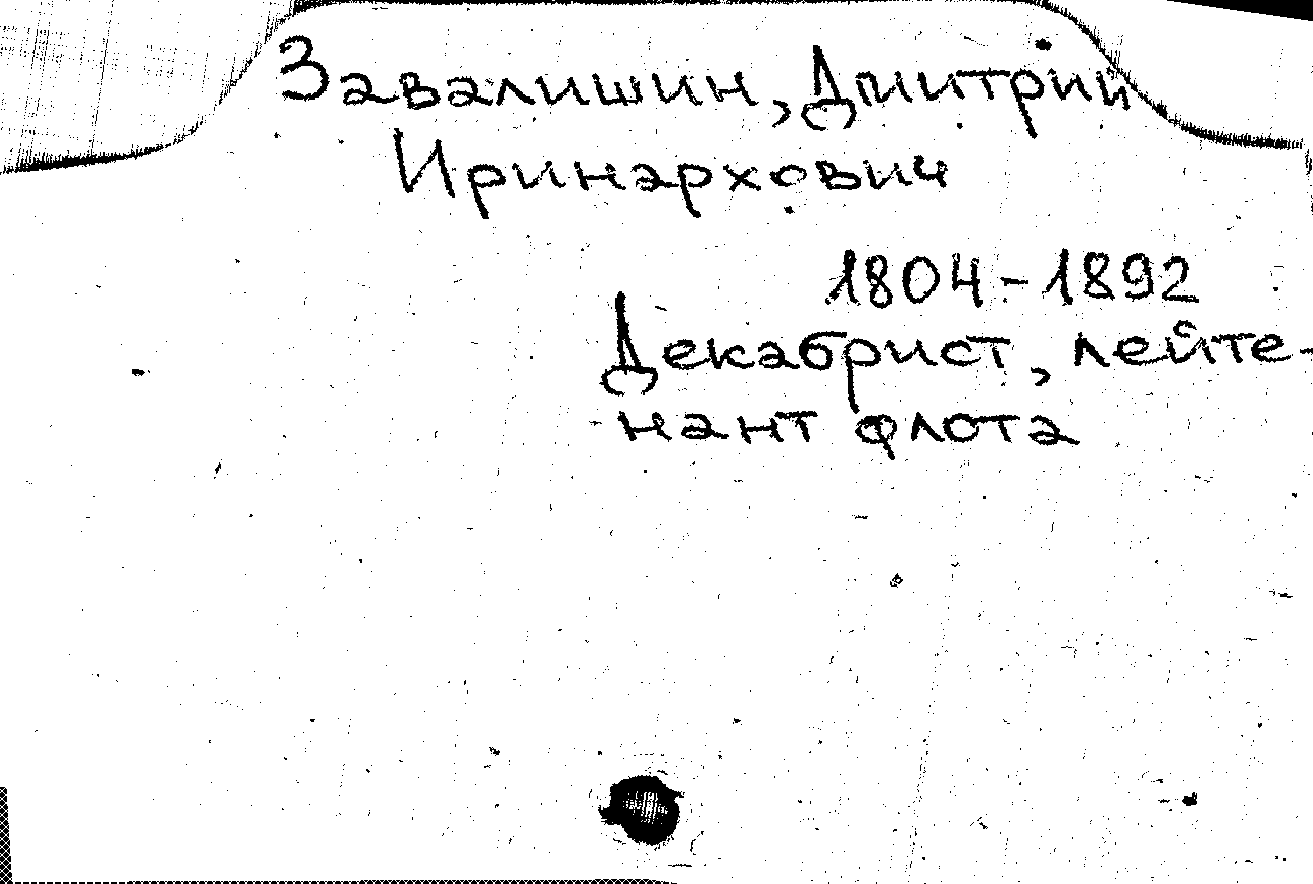 Завалишин, Дмитрий
Иринархович
1804-1892
Декабрист, лейте-
нант флота